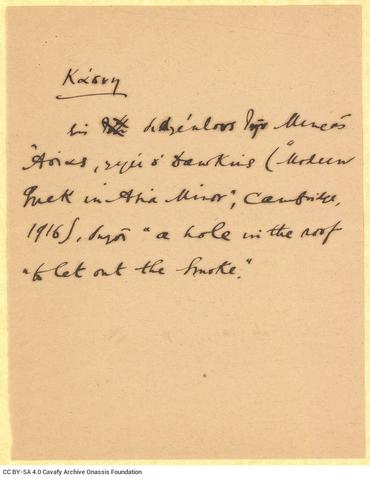 Κάπνη
διαλέκτους της Μικράς
Ἀσίας, λέγει ὁ Dawkins ("Modern
Greek in Asia Minor", Cambridge,
1916), "a hole in the roof
"to let out the smoke."
CC BY-SA 4.0 Cavafy Archive Onassis Foundation